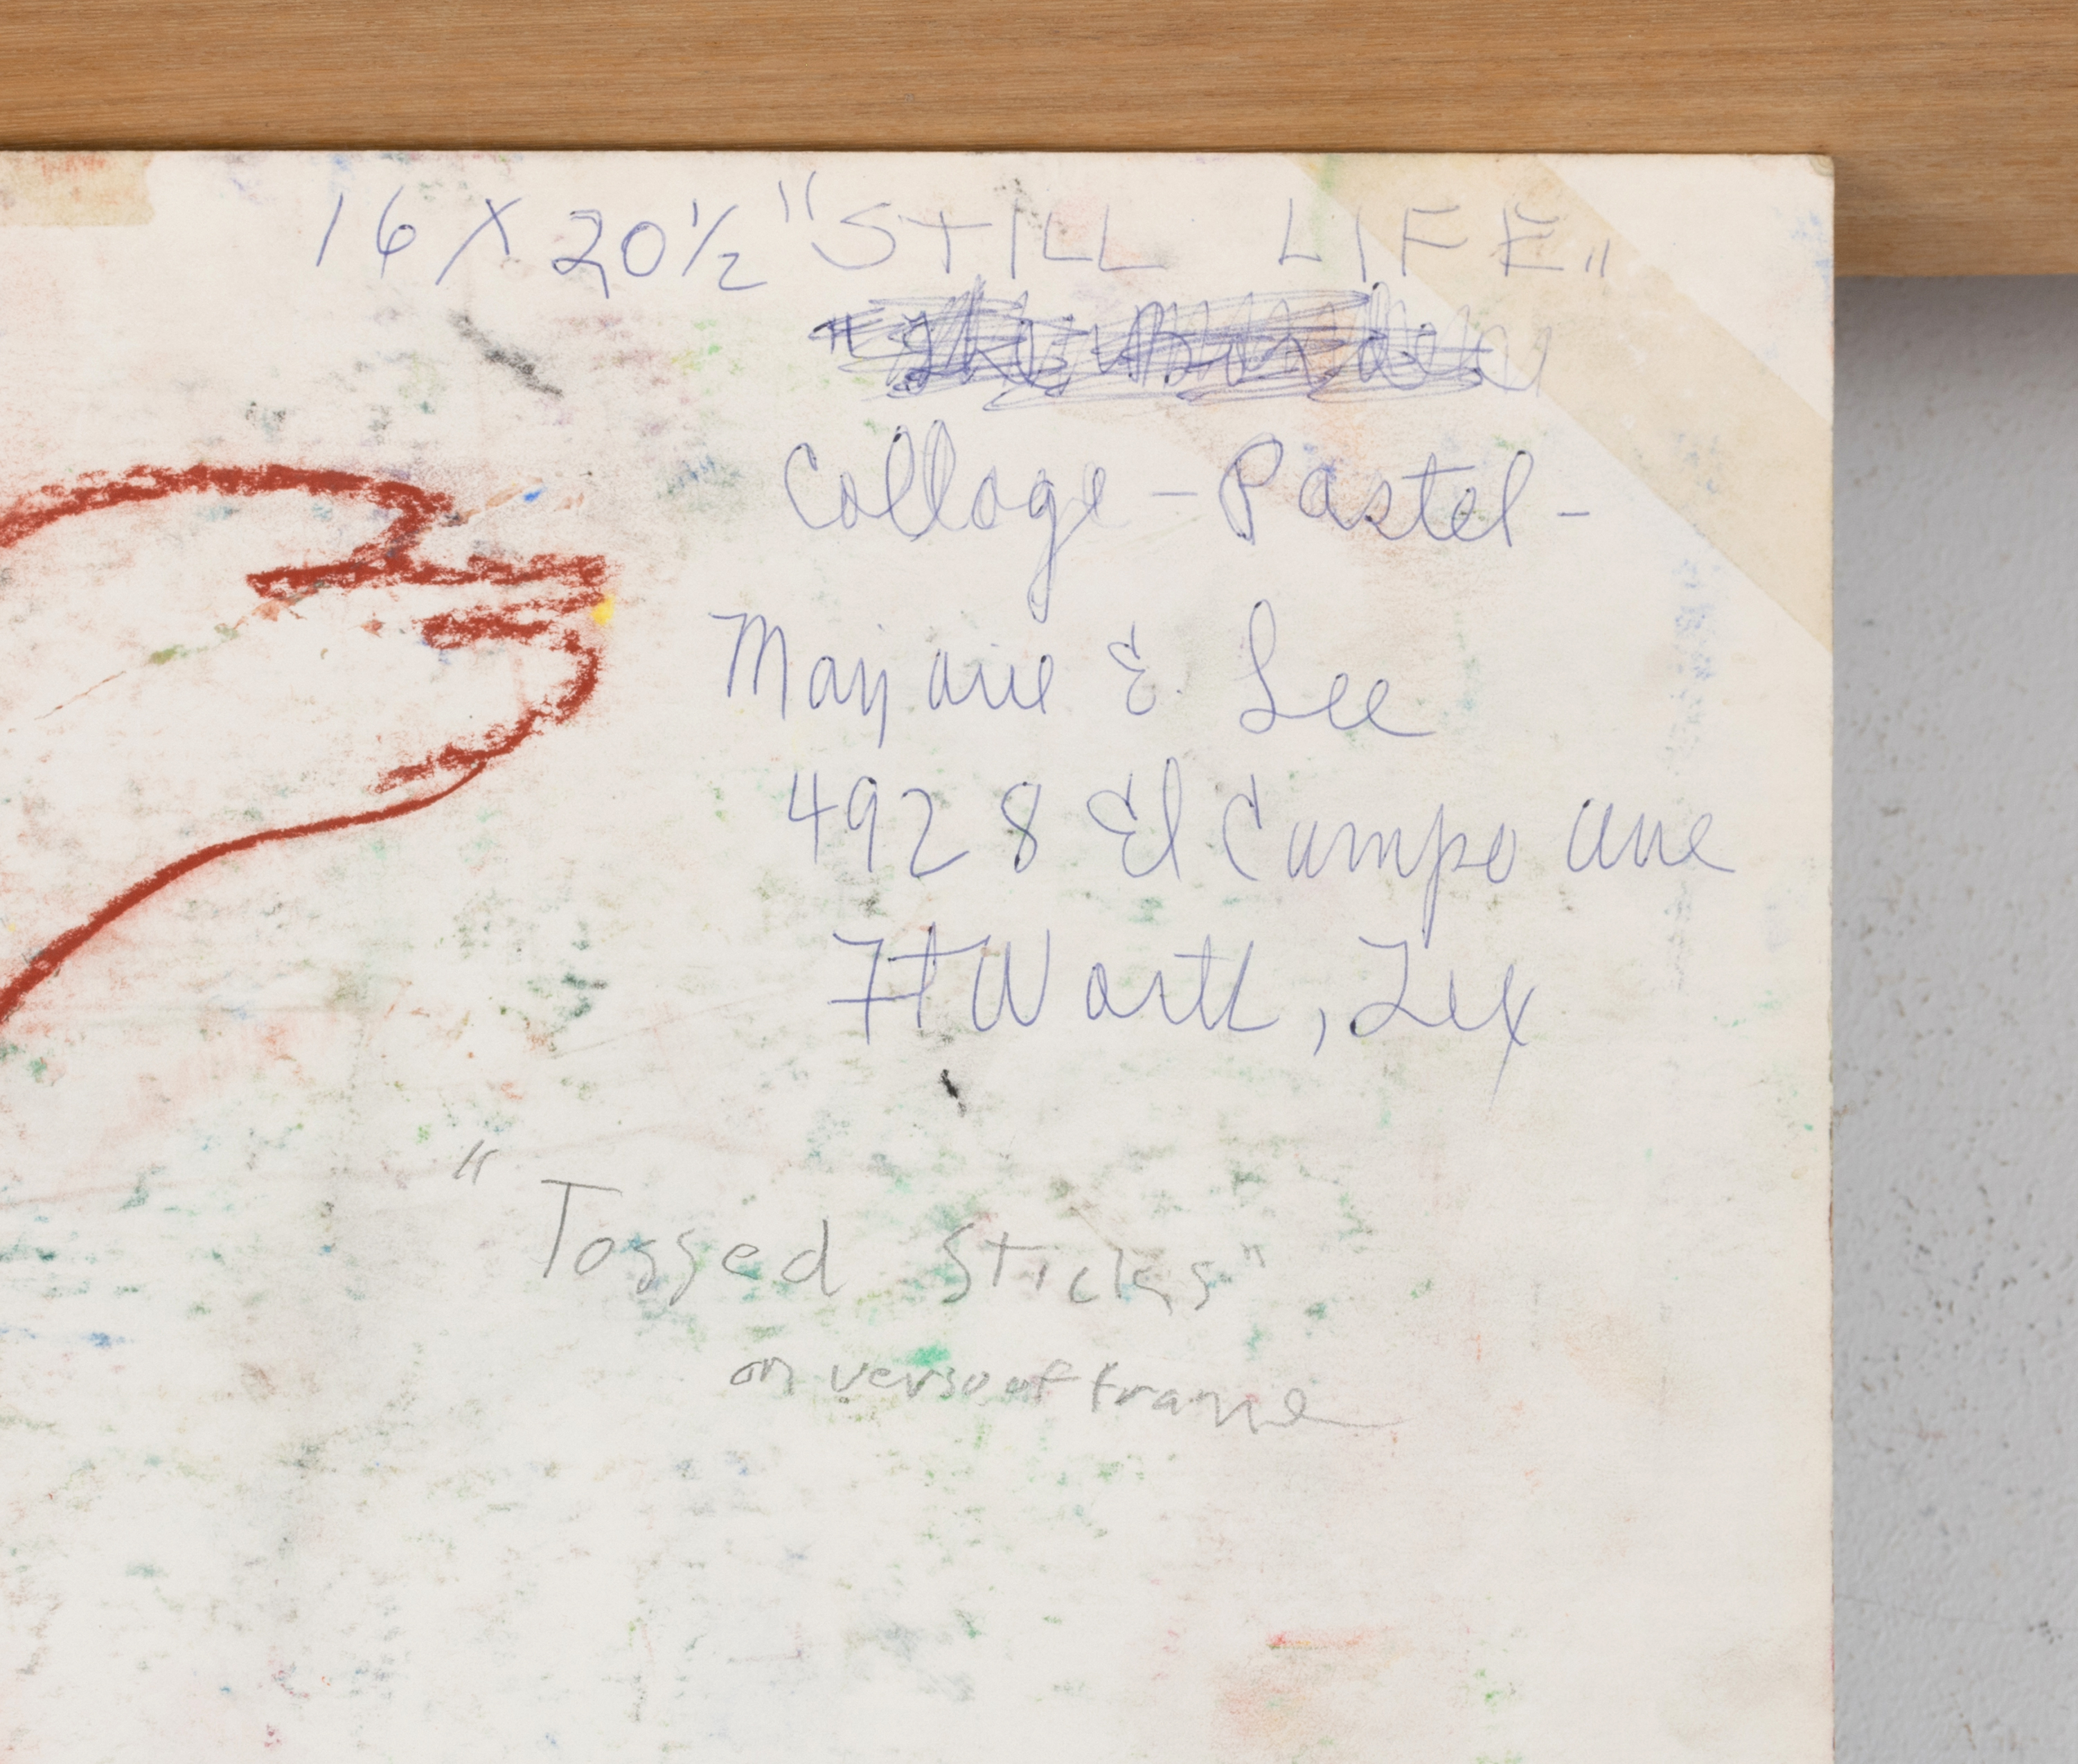 16 X 20½ "STILL LIFE"
Collage - Pastel -
Marjorie E. Lee
4928 El Campo Ave
Ft Worth, Tex
"Tossed Sticks"
on verso of frame